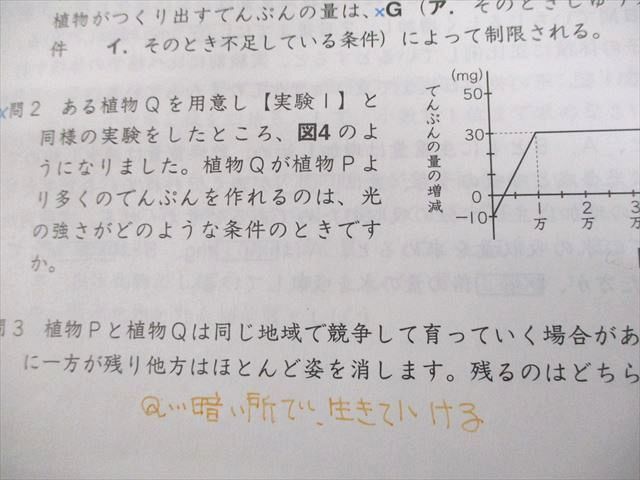 植物がつくり出すでんぷんの量は、×G（ア．そのときじゅう
件　イ．そのとき不足している条件）によって制限される。
×問2　ある植物Qを用意し【実験Ⅰ】と
同様の実験をしたところ、図4のよ
うになりました。植物Qが植物Pよ
り多くのでんぷんを作れるのは、光
の強さがどのような条件のときです
か。
(mg)
50
30
0
-10
でんぷんの量の増減
1万
2万
3万
問3　植物Pと植物Qは同じ地域で競争して育っていく場合があ
に一方が残り他方はほとんど姿を消します。残るのはどちら
Q…暗い所で、生きていける